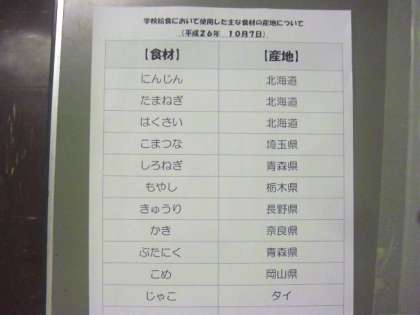 学校給食において使用した主な食材の産地について
(平成26年 10月7日)
【食材】 【産地】
にんじん 北海道
たまねぎ 北海道
はくさい 北海道
こまつな 埼玉県
しろねぎ 青森県
もやし 栃木県
きゅうり 長野県
かき 奈良県
ぶたにく 青森県
こめ 岡山県
じゃこ タイ